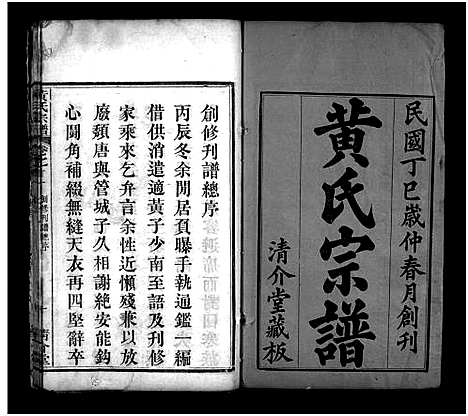 民國丁巳歲仲春月創刊
黃氏宗譜
清介堂藏板
創修刊譜總序
丙辰冬余閒居負曝手執通鑑一編
借供消遣適黃子少南至語及刊修
家乘來乞弁言余性近懶殘兼以放
廢頹唐與管城子久相謝絶安能鈎
心鬬角補綴無縫天衣再四堅辭卒
黃氏宗譜